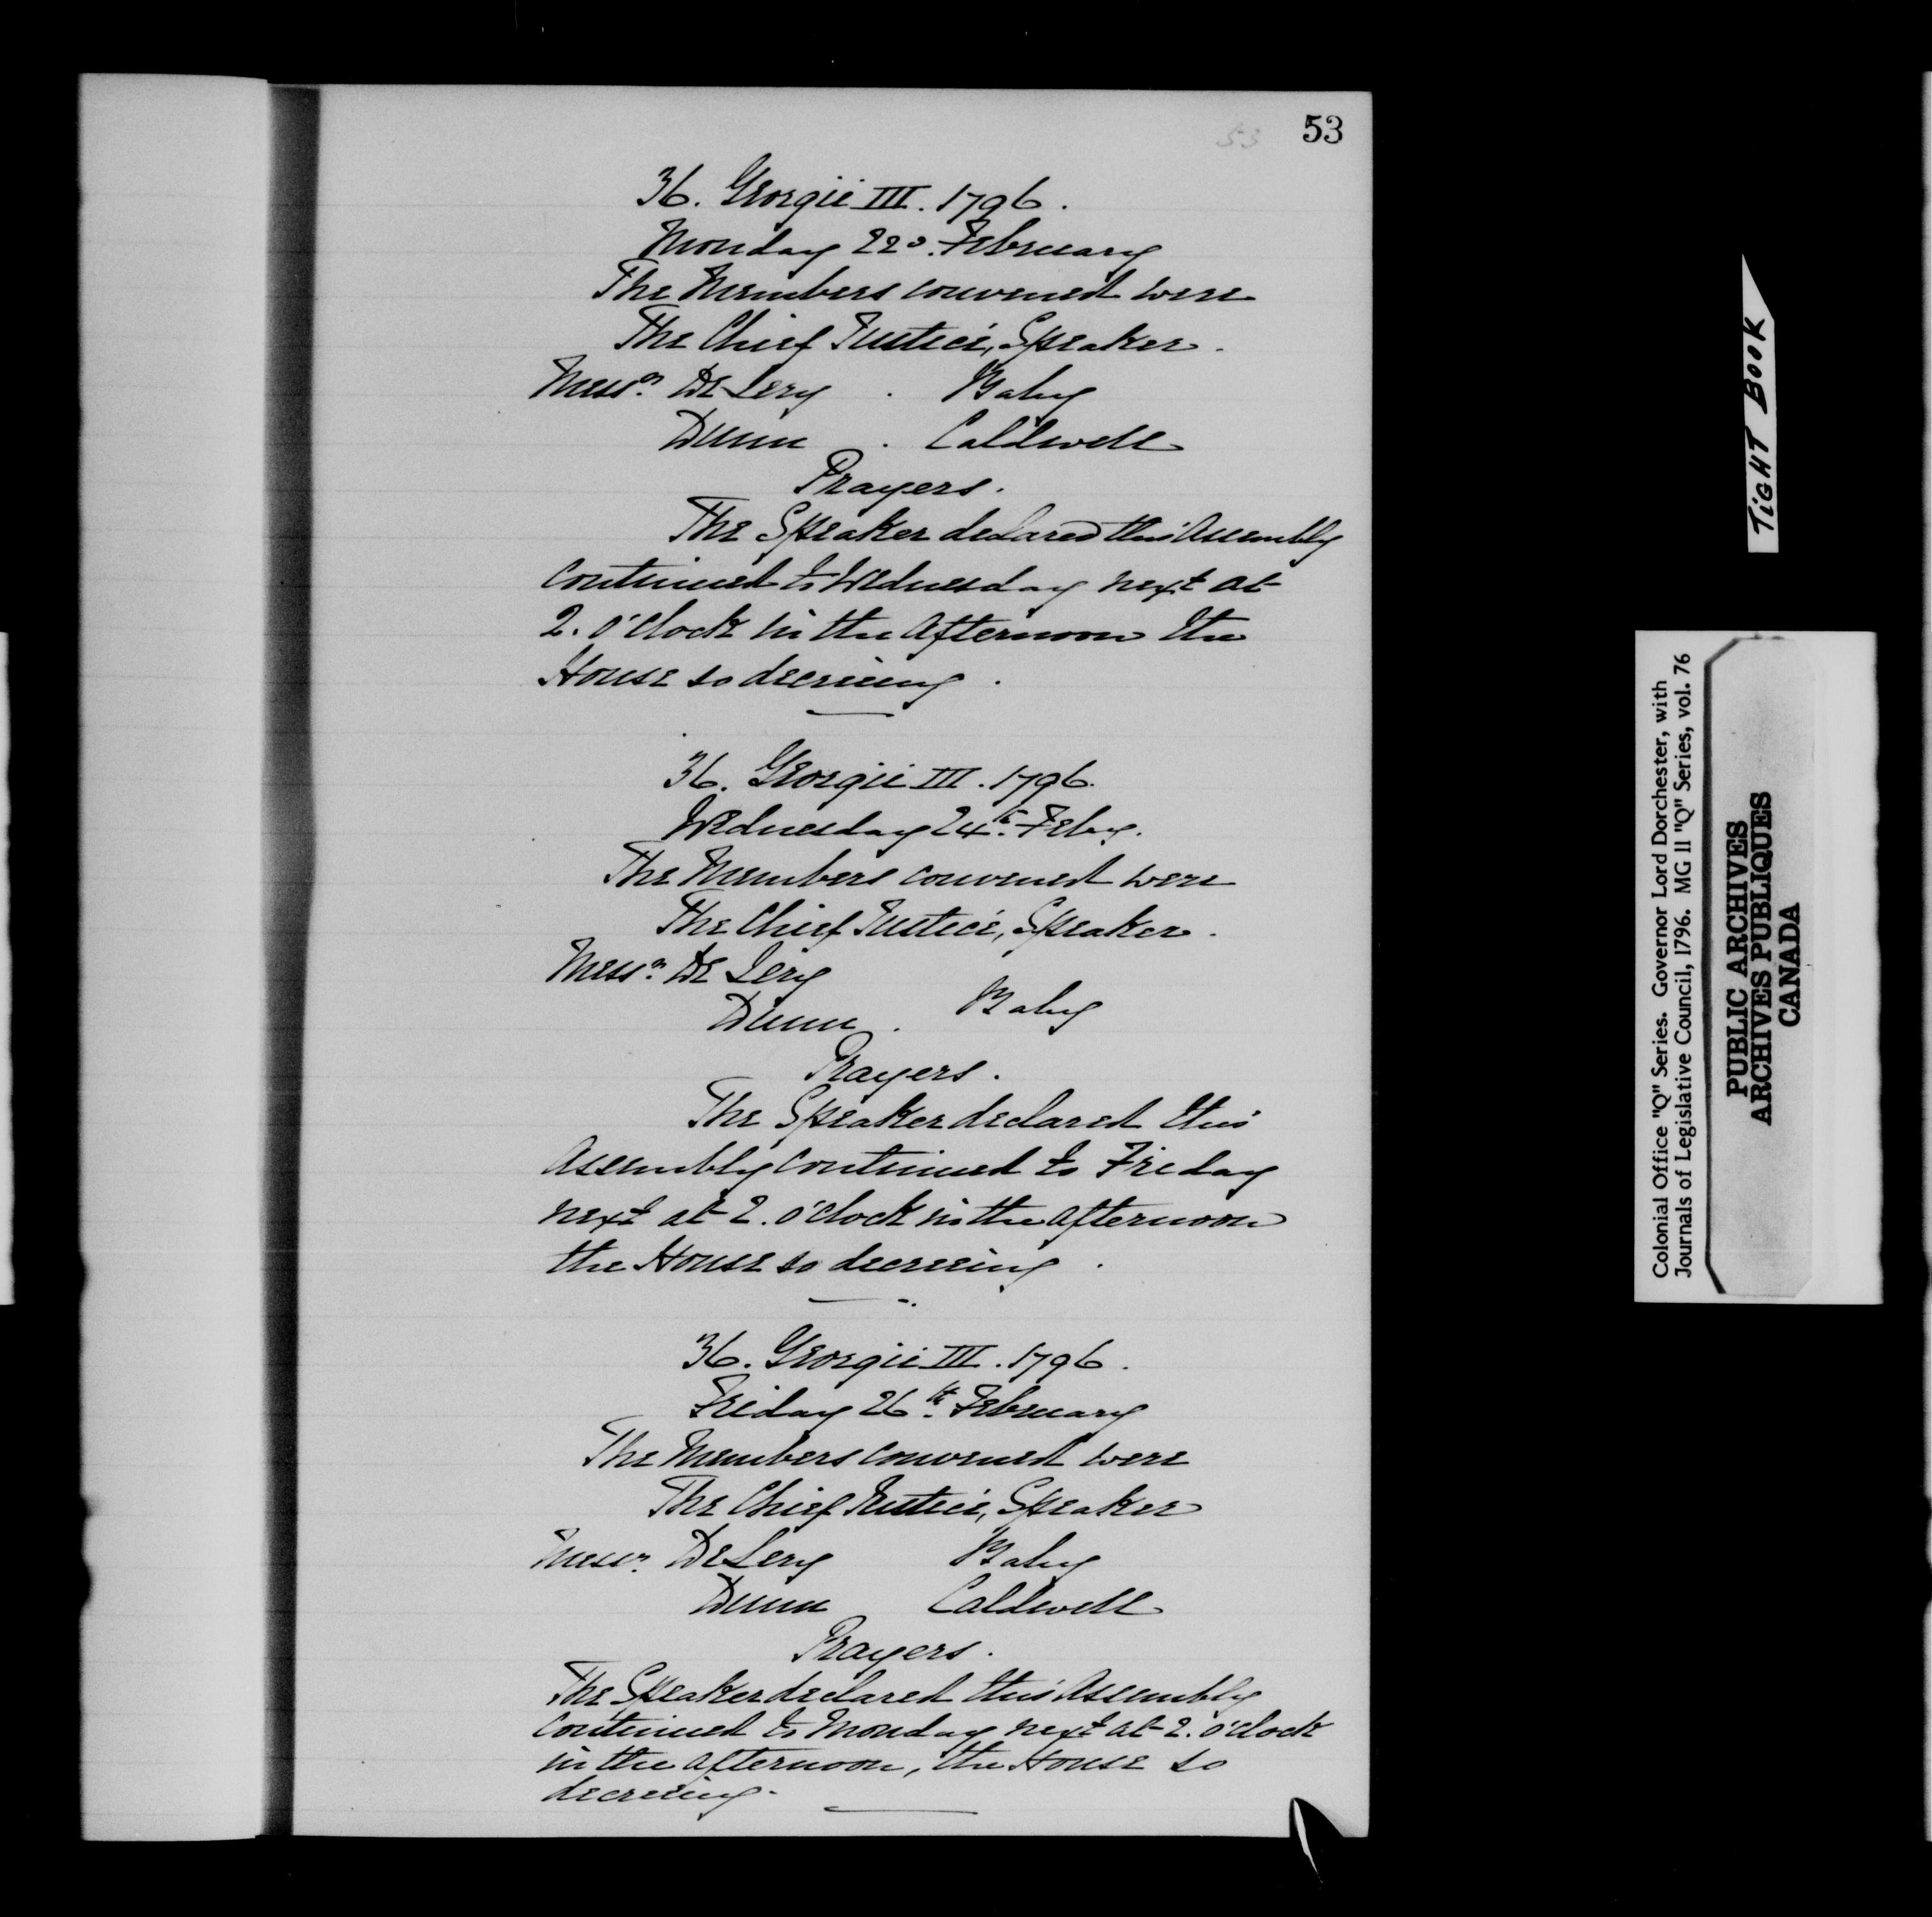 53
53
36. Georgii III. 1796.
Monday 22d. February
The Members convened were
The Chief Justice, Speaker.
Messrs. De Lery . Baby
Dunn . Caldwell
Prayers.
The Speaker declared this Assembly
continued to Wednesday next at
2. o'clock in the afternoon the
House so decreeing.
36. Georgii III. 1796.
Wednesday 24th. Feby.
The Members convened were
The Chief Justice, Speaker.
Messrs. De Lery
Dunn . Baby
Prayers.
The Speaker declared this
Assembly continued to Friday
next at 2. o'clock in the afternoon
the House so decreeing.
36. Georgii III. 1796.
Friday 26th. February
The Members convened were
The Chief Justice, Speaker
Messrs. De Lery Baby
Dunn Caldwell
Prayers.
The Speaker declared this Assembly
continued to Monday next at 2. o'clock
in the afternoon, the House so
decreeing.
TIGHT BOOK
Colonial Office "Q" Series. Governor Lord Dorchester, with
Journals of Legislative Council, 1796. MG 11 "Q" Series, vol. 76
PUBLIC ARCHIVES
ARCHIVES PUBLIQUES
CANADA